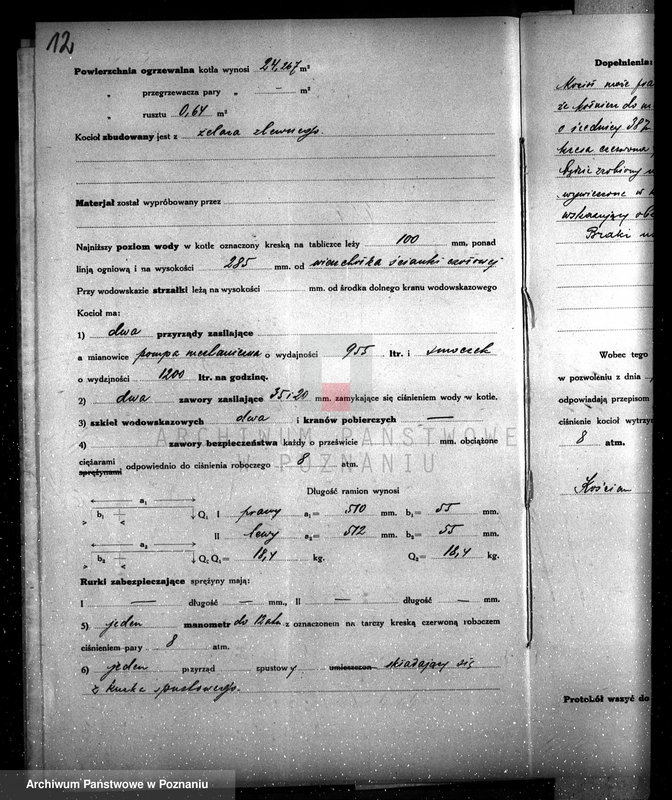 12
Powierzchnia ogrzewalna kotła wynosi 24,267 m²
" przegrzewacza pary " — m²
" rusztu 0,64 m²
Kocioł zbudowany jest z żelaza zlewnego.
Materjał został wypróbowany przez
Najniższy poziom wody w kotle oznaczony kreską na tabliczce leży 100 mm. ponad
linją ogniową i na wysokości 285 mm. od wierzchołka ścianki czołowej
Przy wodowskazie strzałki leżą na wysokości mm. od środka dolnego kranu wodowskazowego
Kocioł ma:
1) dwa przyrządy zasilające
a mianowice pompa mechaniczna o wydajności 955 ltr. i smoczek
o wydzjności 1200 ltr. na godzinę.
2) dwa zawory zasilające 35 i 20 mm. zamykające się ciśnieniem wody w kotle.
3) szkieł wodowskazowych dwa i kranów pobierczych —
4) zawory bezpieczeństwa każdy o prześwicie mm. obciążone
ciężarami
sprężynami odpowiednio do ciśnienia roboczego 8 atm.
Długość ramion wynosi
a₁ b₁ Q₁ I prawy a₁= 510 mm. b₁= 55 mm.
II lewy a₂= 512 mm. b₂= 55 mm.
a₂ b₂ Q₂ Q₁= 18,4 kg. Q₂= 18,4 kg.
Rurki zabezpieczające sprężyny mają:
I — długość — mm., II — długość — mm.
5) jeden manometr do 12 atm. z oznaczonem na tarczy kreską czerwoną roboczem
ciśnieniem pary 8 atm.
6) jeden przyrząd spustowy umieszczon składający się
z kurka spustowego.
Dopełnienia:
o średnicy 387
wskazujący
Braki
Wobec tego
w pozwoleniu z dnia
odpowiadają przepisom
ciśnienie kocioł wytrzy
8 atm.
Kościan
Protokół wszyć do
ARCHIWUM PAŃSTWOWE
W POZNANIU
Archiwum Państwowe w Poznaniu